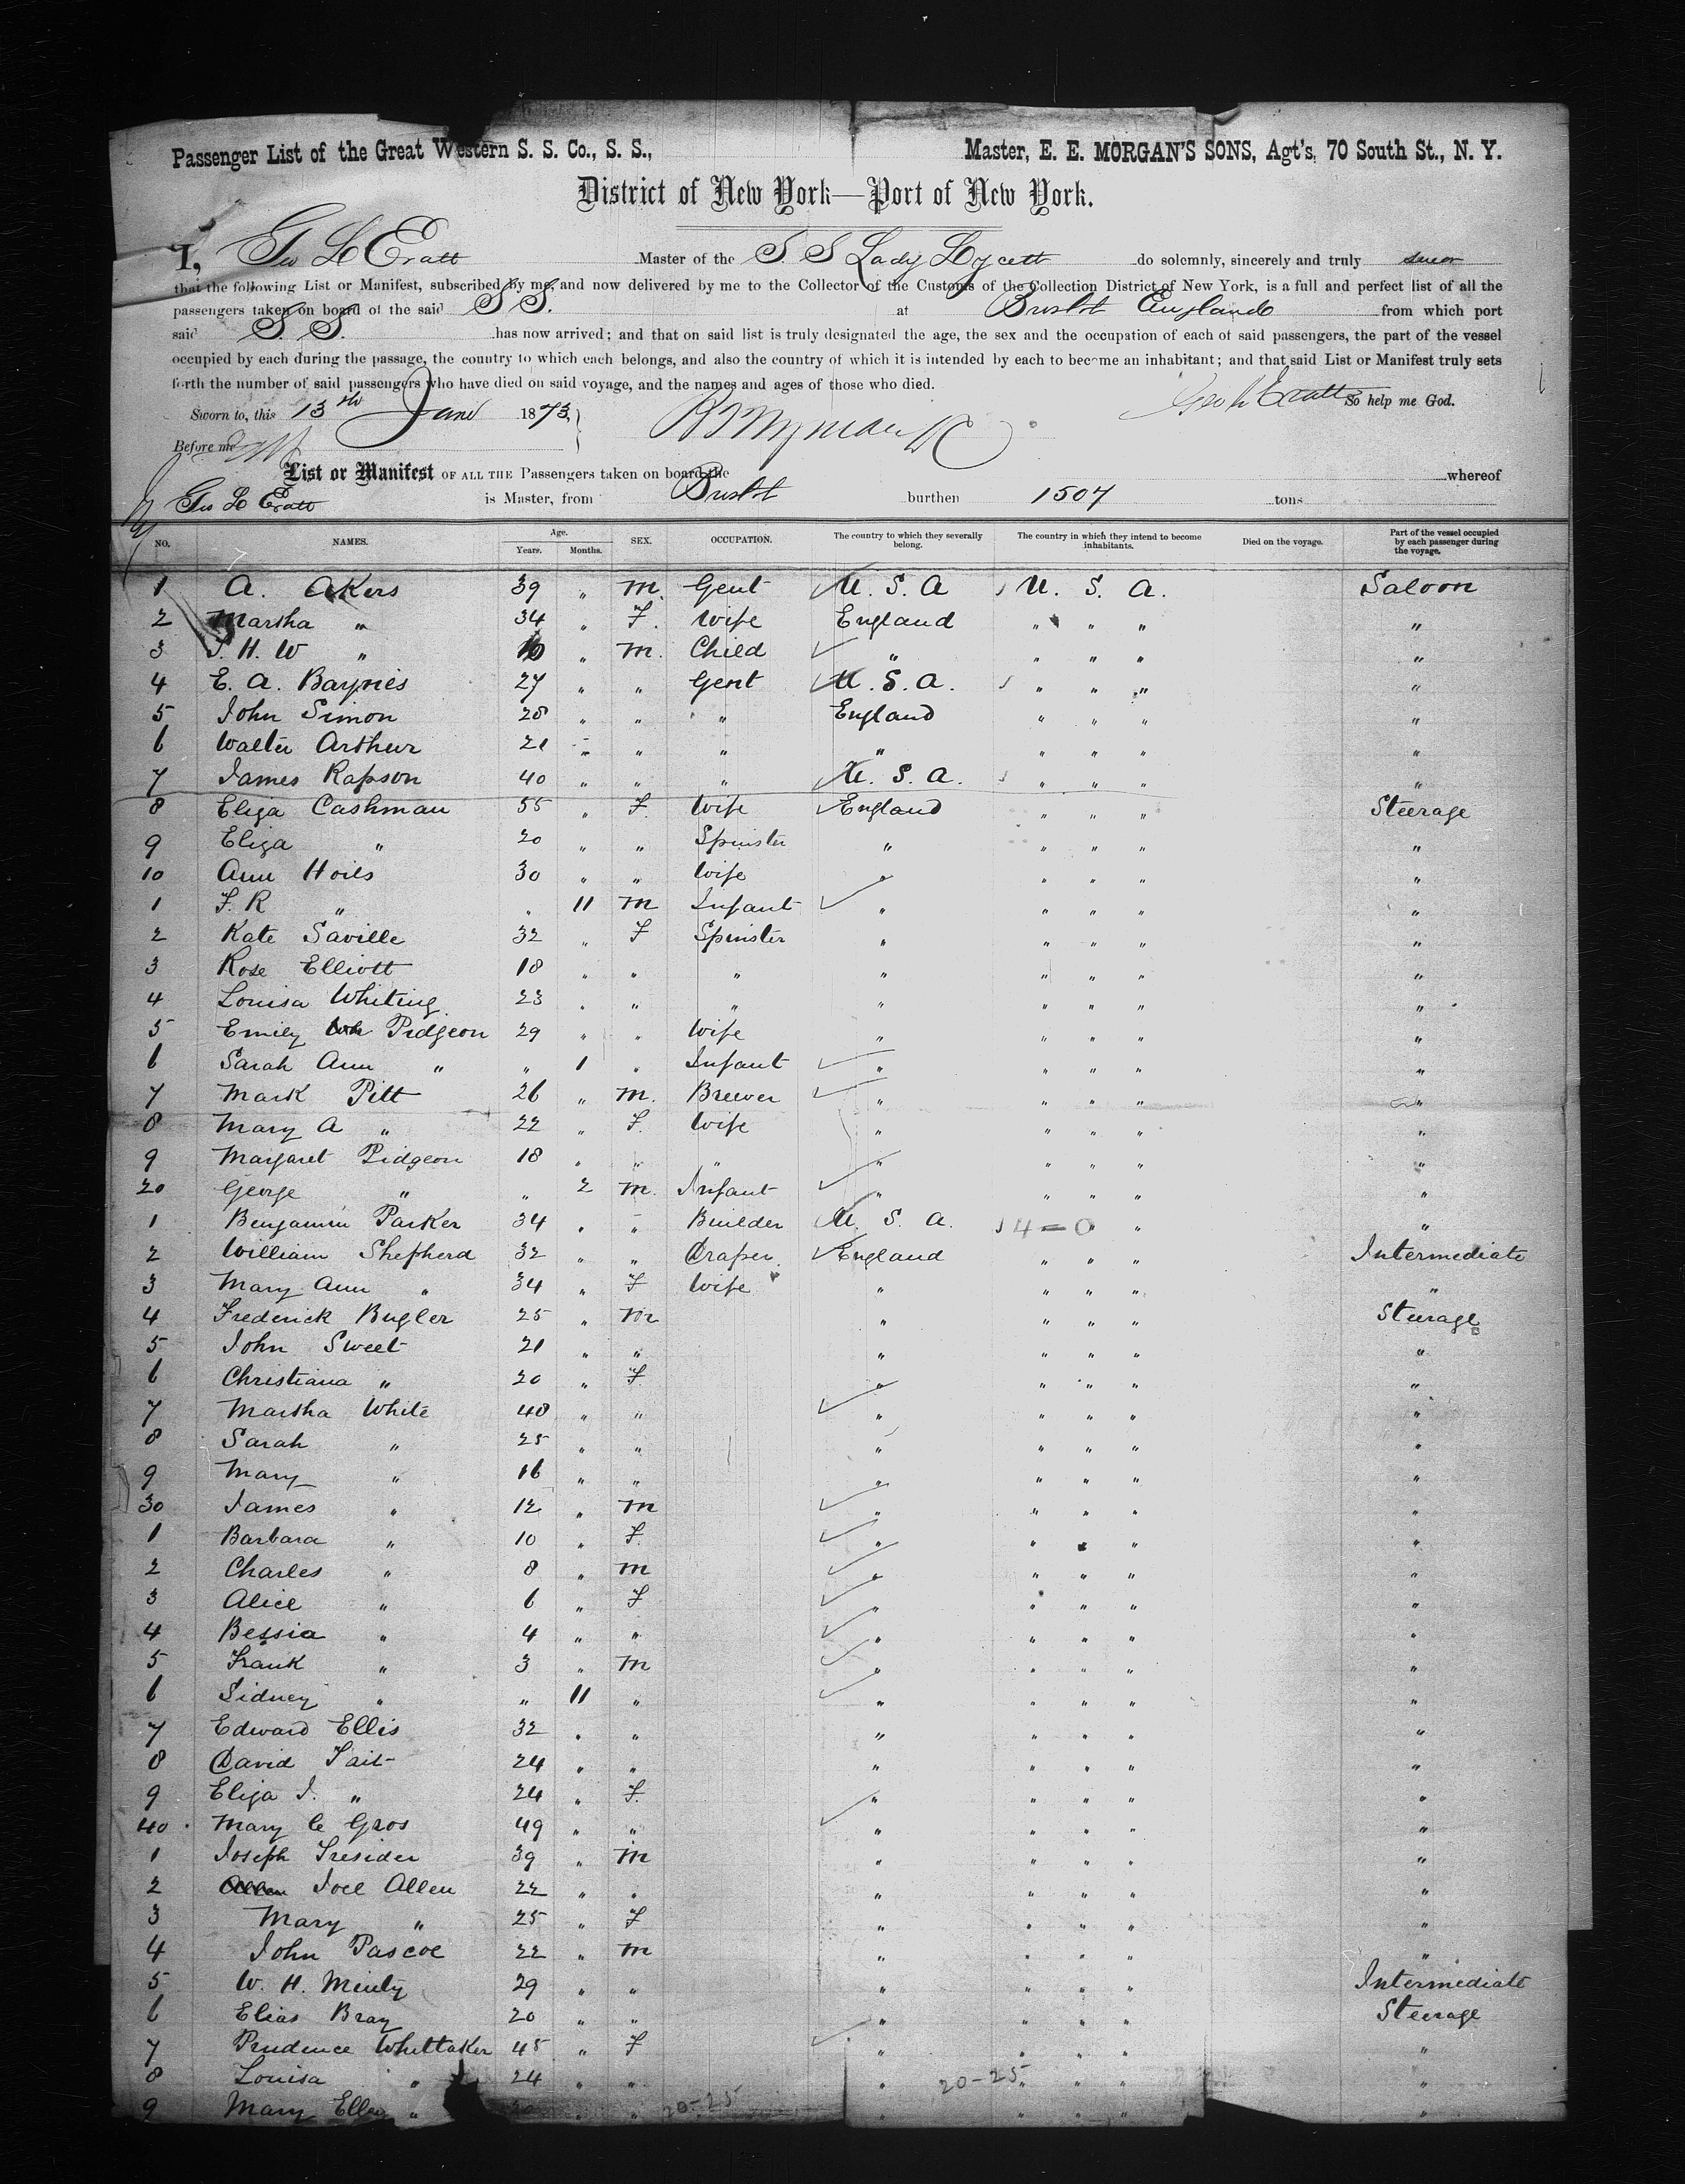 Passenger List of the Great Western S. S. Co., S. S., Master, E. E. MORGAN'S SONS, Agt's, 70 South St., N. Y.
District of New York—Port of New York.
I, Geo H Eratt Master of the S. S Lady Lycett do solemnly, sincerely and truly swear
that the following List or Manifest, subscribed by me, and now delivered by me to the Collector of the Customs of the Collection District of New York, is a full and perfect list of all the
passengers taken on board of the said S S. at Bristol England from which port
said S. S. has now arrived; and that on said list is truly designated the age, the sex and the occupation of each of said passengers, the part of the vessel
occupied by each during the passage, the country to which each belongs, and also the country of which it is intended by each to become an inhabitant; and that said List or Manifest truly sets
forth the number of said passengers who have died on said voyage, and the names and ages of those who died.
Sworn to, this 13th June 1873, So help me God.
Before me
List or Manifest OF ALL THE Passengers taken on board the whereof
Geo H Eratt is Master, from Bristol burthen 1504 tons
NO. NAMES. Age. Years. Months. SEX. OCCUPATION. The country to which they severally belong. The country in which they intend to become inhabitants. Died on the voyage. Part of the vessel occupied by each passenger during the voyage.
1 A. Akers 39 " M. Gent U. S. A U. S. A. Saloon
2 Martha " 34 " F. Wife England " " " "
3 J. H. W " 10 " M. Child " " " " "
4 E. A. Baynes 27 " " Gent U. S. A. " " " "
5 John Simon 28 " " " England " " " "
6 Walter Arthur 21 " " " " " " " "
7 James Rapson 40 " " " U. S. A. " " " "
8 Eliza Cashman 55 " F. Wife England " " " Steerage
9 Eliza " 20 " " Spinster " " " " "
10 Ann Hoils 30 " " Wife " " " " "
1 F. R " " 11 M Infant " " " " "
2 Kate Saville 32 " F Spinster " " " " "
3 Rose Elliott 18 " " " " " " " "
4 Louisa Whiting 23 " " " " " " " "
5 Emily Pidgeon 29 " " Wife " " " " "
6 Sarah Ann " " 1 " Infant " " " " "
7 Mark Pitt 26 " M. Brewer " " " " "
8 Mary A " 22 " F. Wife " " " " "
9 Margaret Pidgeon 18 " " " " " " " "
20 George " " 2 M. Infant " " " " "
1 Benjamin Parker 34 " " Builder U. S. A. 4=0 " " "
2 William Shepherd 32 " " Draper England " " " Intermediate
3 Mary Ann " 34 " F Wife " " " " "
4 Frederick Bugler 25 " M " " " " Steerage
5 John Sweet 21 " " " " " " "
6 Christiana " 20 " F " " " " "
7 Martha White 48 " " " " " " "
8 Sarah " 25 " " " " " " "
9 Mary " 16 " " " " " " "
30 James " 12 " M " " " " "
1 Barbara " 10 " F. " " " " "
2 Charles " 8 " M " " " " "
3 Alice " 6 " F " " " " "
4 Bessia " 4 " " " " " " "
5 Frank " 3 " M " " " " "
6 Sidney " " 11 " " " " " "
7 Edward Ellis 32 " " " " " " "
8 David Tait 24 " " " " " " "
9 Eliza J. " 24 " F. " " " " "
40 Mary le Gros 49 " " " " " " "
1 Joseph Tresider 39 " M " " " " "
2 Joel Allen 22 " " " " " " "
3 Mary " 25 " F " " " " "
4 John Pascoe 22 " M " " " " "
5 W. H. Minty 29 " " " " " " Intermediate
6 Elias Bray 20 " " " " " " Steerage
7 Prudence Whittaker 45 " F " " " " "
8 Louisa " 24 " " " 20-25 " " " "
9 Mary Ellen " " " 20-25 " " " " "